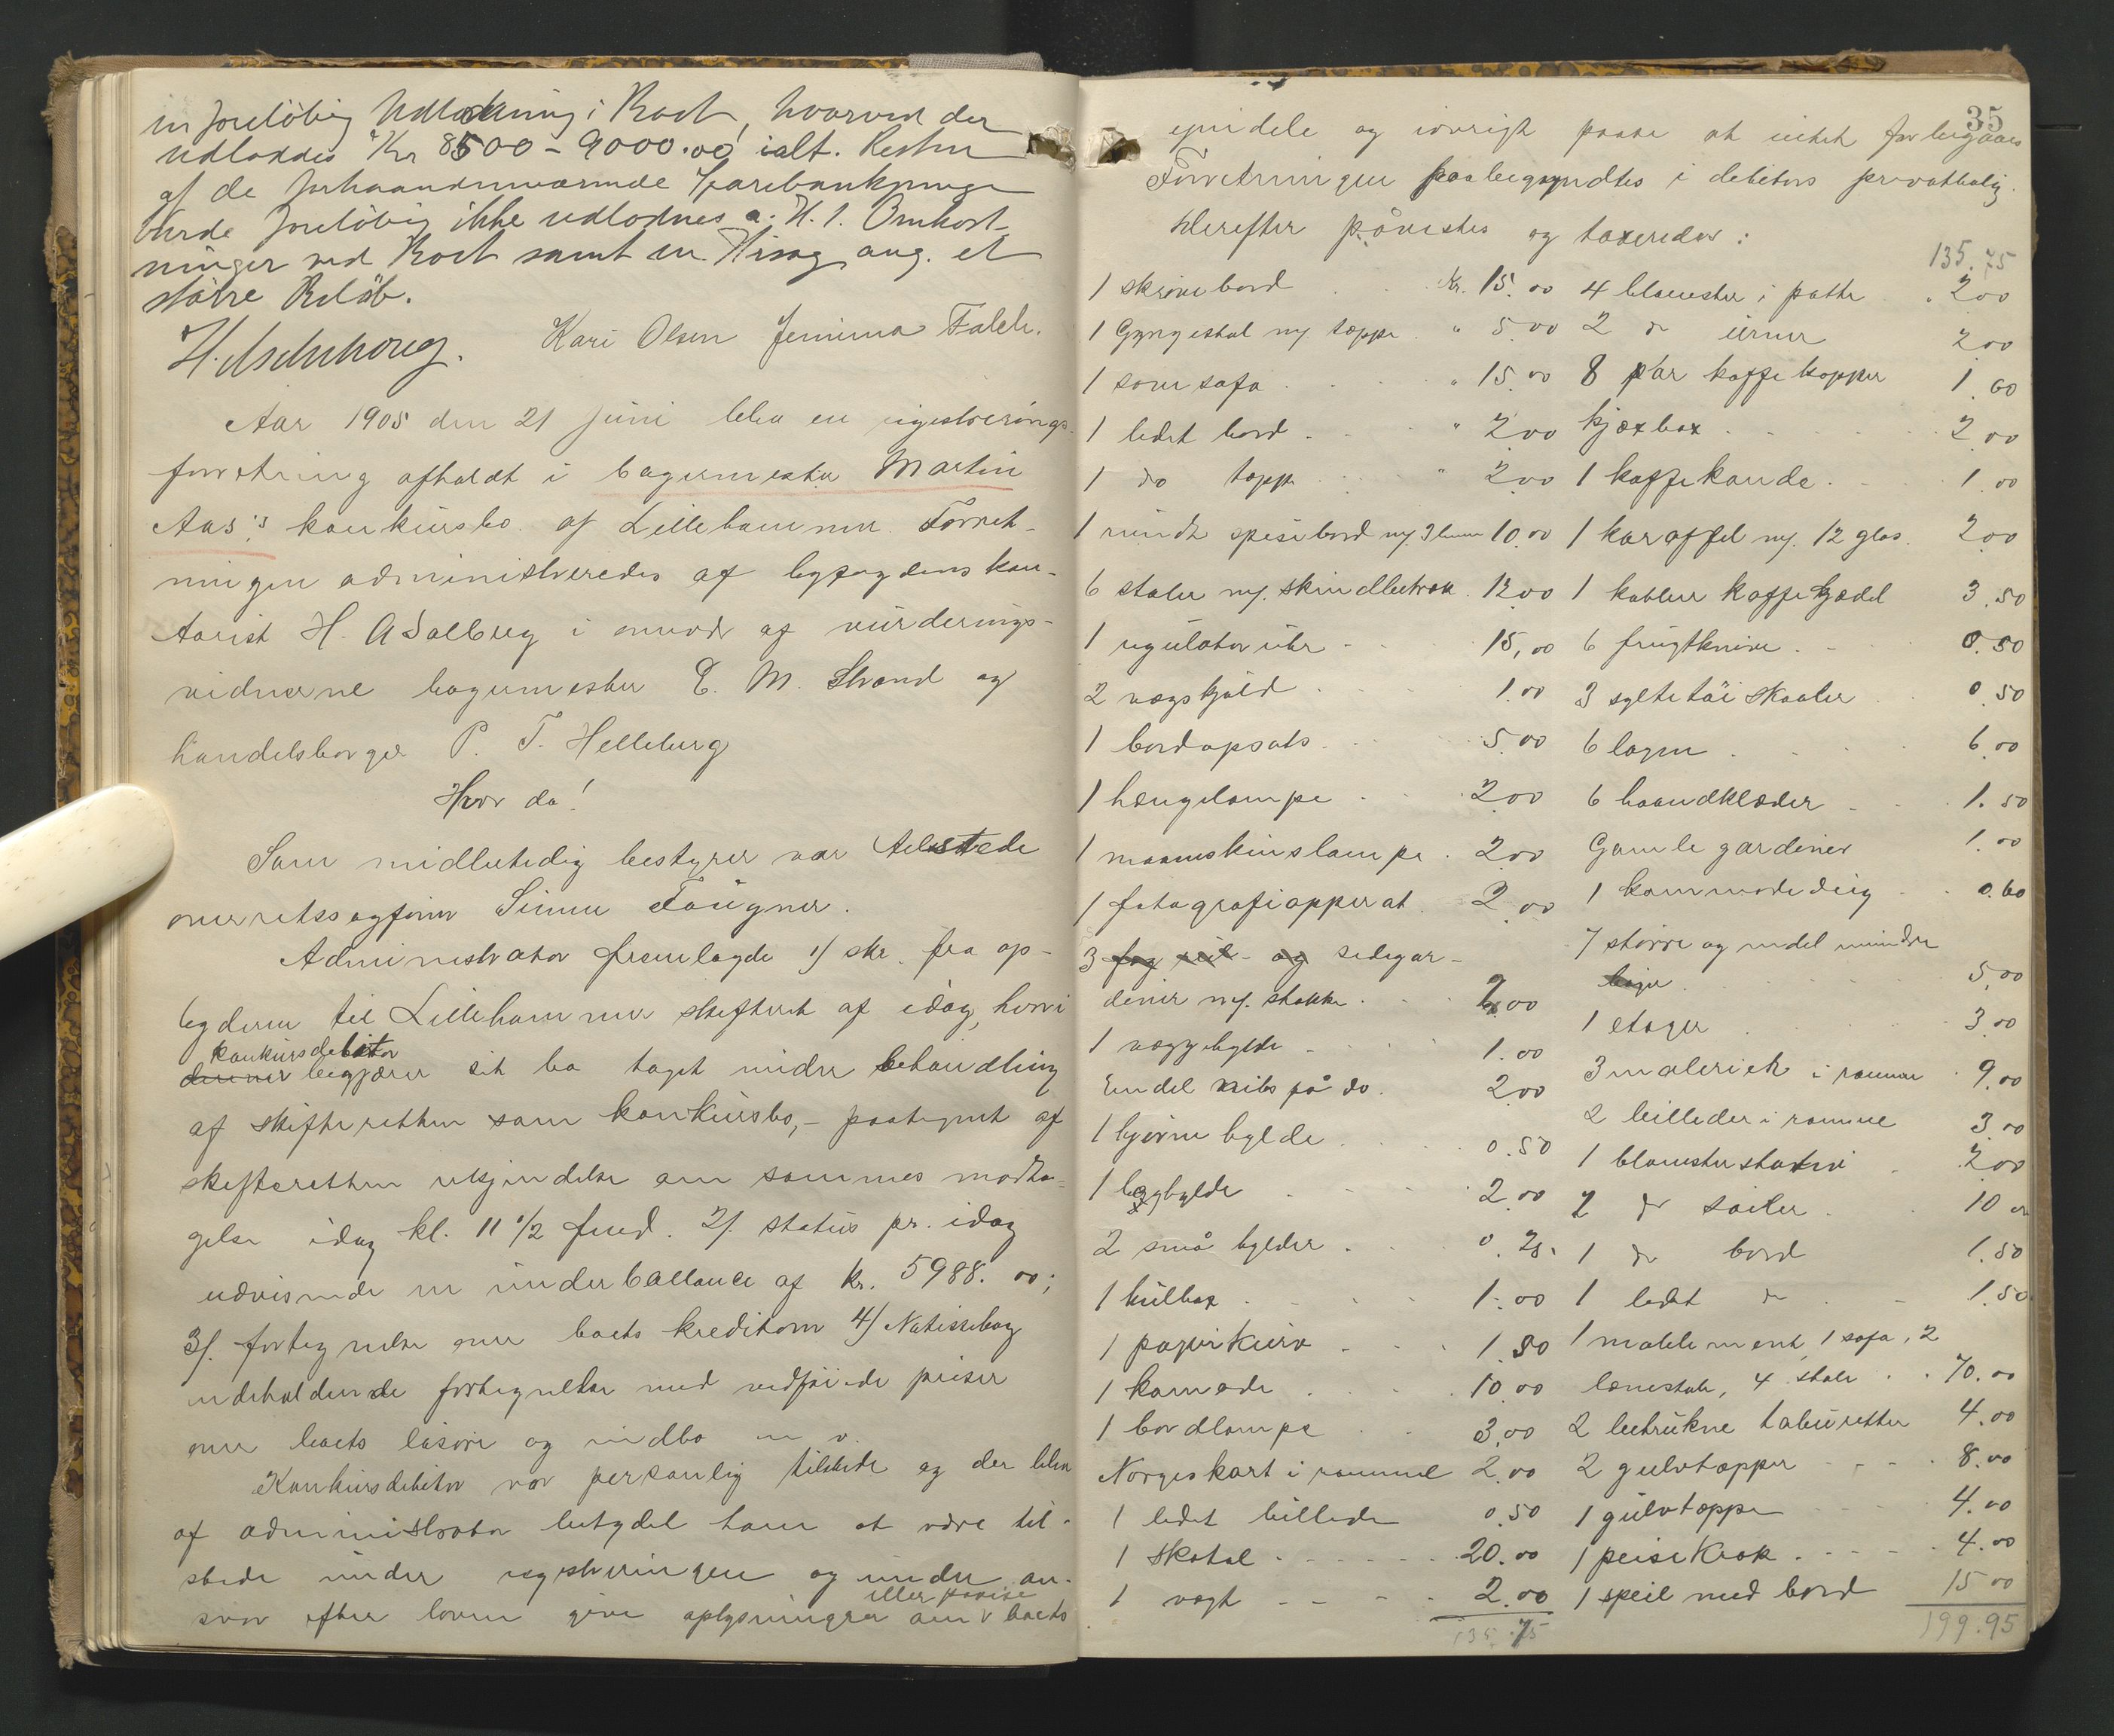 en foreløbig Udlodning i Boet, hvorved der
udloddes Kr 8500 - 9000.00 ialt. Resten
af de forhaandenværende Sparebankpenge
burde foreløbig ikke udloddes a. H. t. Omkost-
ninger ved Boet samt en Tvisag ang. et
større Beløb.
Kari Olsen Jemima Falch.
Aar 1905 den 21 juni blev en registrerings-
forretning afholdt i bagermester Martin
Aas's konkursbo af Lillehammer. Forret-
ningen administreredes af byfogdens kon-
torist H. Adalberg i onvær af vurderings-
vidnerne bagermester E. M. Strand og
handelsborger P. T. Helleberg
Hvor da!
Som midlertidig bestyrer var tilstede
overretssagfører Simen Fougner.
Administrator fremlagde 1/ skr. fra op-
byderen til Lillehammer skifteret af idag, hvori
konkursdebitor
denne begjærer sit bo taget under behandling
af skifteretten som konkursbo, - paategnet af
skifteretten rkjendelse om sammes modta-
gelse idag kl. 11 1/2 fmd. 2/. status pr. idag
udvisende en underballance af kr. 5988.00;
3/. fortegnelse over boets kreditorer 4/ Notissebog
indeholdende fortegnelse med vedføiede priser
over boets løsøre og indbo m v.
Konkursdebitor var personlig tilstede og der blev
af administrator betydet ham at være til-
stede under registreringen og under an-
eller paavise
svar efter loven give oplysninger om v boets
35
eiendele og iøvrigt passe at intet forbigaaes
Forretningen paabegyndtes i debitors privatbolig.
Derefter påvistes og taxeredes:
1 skrivebord Kr. 15.00
1 Gyngestol m/. tæppe " 5.00
1 sovesofa " 15.00
1 lidet bord " 2.00
1 do tæppe " 2.00
1 rundt spisebord m/. 3 lemmer 10.00
6 stoler m/. skindbetræk 12.00
1 regulator uhr 15,00
2 vægskjold 1.00
1 bordopsats 5.00
1 hængelampe 2.00
1 maaneskinslampe 2.00
1 fotografiapperat 2.00
3 fag rul- og sidegar-
diner m/. stokke 2.00
1 væghylde 1.00
Endel nibs på do. 2.00
1 hjørnehylde 0.50
1 boghylde 2.00
2 små hylder 0.25
1 kulbox 1.00
1 papirkurv 1.50
1 komode 10.00
1 bordlampe 3.00
Norgeskart i ramme 2.00
1 lidet billede 0.50
1 skatol 20.00
1 vægt 2.00
135.75
135.75
4 blomster i potte 2.00
2 do urner 2.00
8 par kaffekopper 1.60
kjæxbox 2.00
1 kaffekande 1.00
1 karaffel m/. 12 glas 2.00
1 kobber kaffekjædel 3.50
6 frugtknive 0.50
3 syltetøiskaaler 0.50
6 lagen 6.00
6 haandklæder 1.50
Gamle gardiner 1.00
1 kommodedug 0.60
7 større og endel mindre
bøger 5.00
1 etager 3.00
3 malerier i ramme 9.00
2 billeder i ramme 3.00
1 blomsterstativ 2.00
2 do søiler 10.00
1 do bord 1.50
1 lidet do 1.50
1 møblement, 1 sofa, 2
lænestole, 4 stole 70.00
2 betrukne taburetter 4.00
2 gulvtæpper 8.00
1 gulvtæppe 4.00
1 peisekrok 4.00
1 speil med bord 15.00
199.95